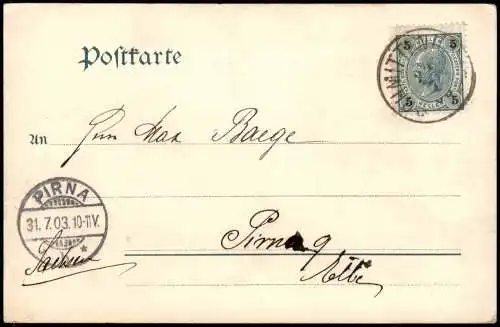 Postkarte
5 5
5 5
An Herrn Max Baege
PIRNA
31.7.03.10-11V.
Pirna
Elbe
Sachsen